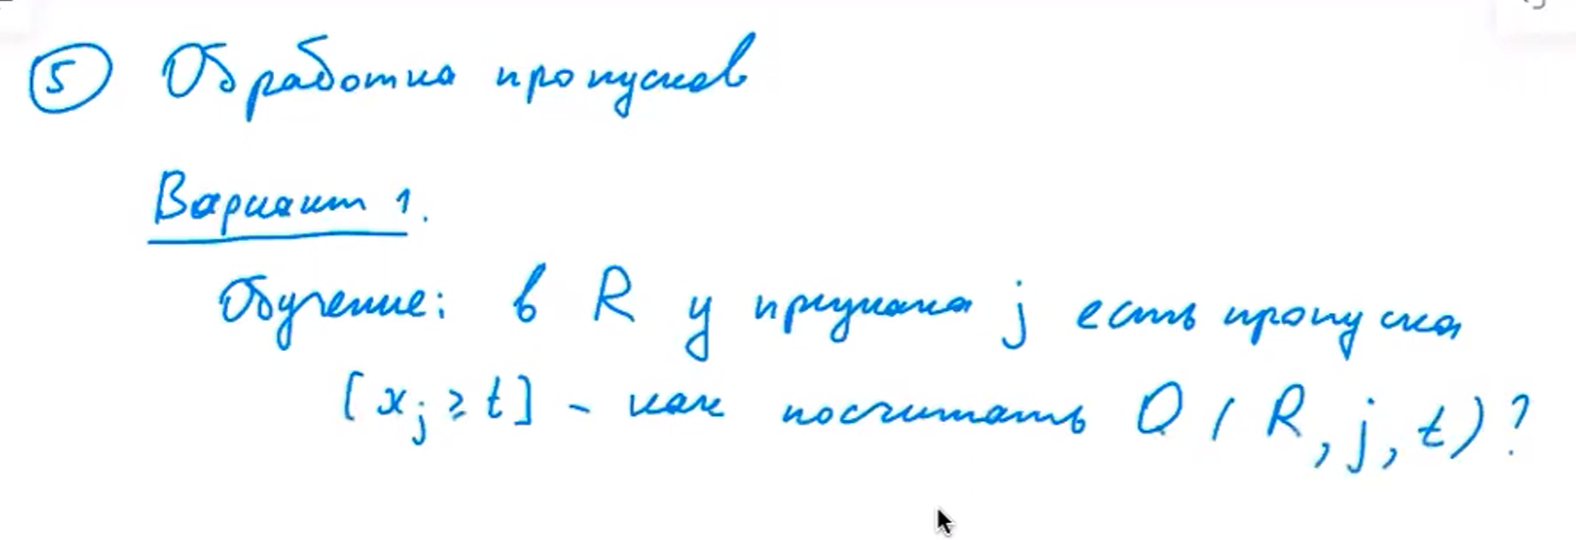 ⑤ Обработка пропусков
Вариант 1.
Обучение: в R у признака j есть пропуска
[x_j ≥ t] - как посчитать Q(R, j, t)?